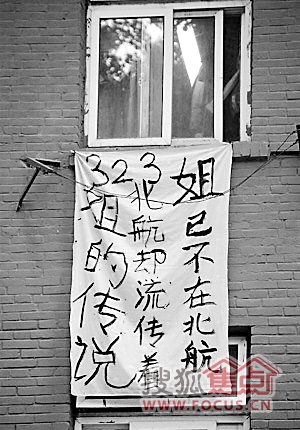 姐已不在北航
北航却流传着
323
姐的传说
搜狐焦点
WWW.FOCUS.CN